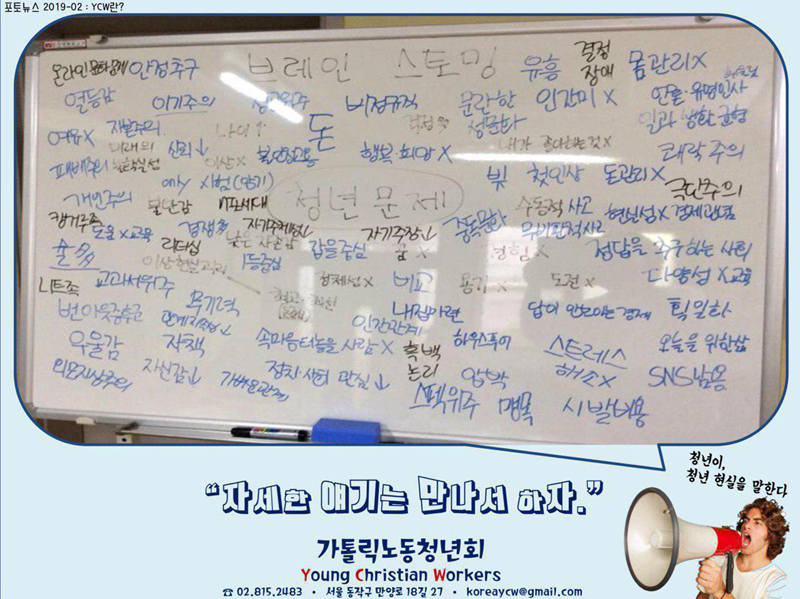 포토뉴스 2019-02 : YCW란?
브레인 스토밍
안정추구 유흥 결정 장애 몸관리 X
열등감 이기주의 비정규직 문란한 성문화 인간미 X 연출·유명인사
돈 일과 생활 균형
여유 X 자본주의 나이↑ 걱정 내가 좋아하는 것 X
미래의 불확실성 신뢰↓ 이상 X 행복·희망 X 쾌락주의
패배주의 only 시험(암기) 빚 첫인상 돈관리 X
개인주의 불안감 N포세대 청년문제 극단주의
캥거루족 도움 X 교육 자기주장↓ 중독문화 수동적 사고 현실성 X 경제관념
리더십 낮은 자존감 갑을중심 꿈 X 무비판적사고 경험 X 정답을 추구하는 사회
술 多 이상현실괴리 1등중심
니트족 교과서위주 정체성 X 비교 용기 X 도전 X 다양성 X 교육
번아웃증후군 무기력 내집마련 답이 안보이는 경제 획일화
관계지속성↓ 인간관계
우울감 자책 속마음터놓을 사람 X 흑백 논리 하우스푸어 스트레스 해소 X 오늘을 위한 삶
외모지상주의 자신감↓ 가벼운관계 정치·사회 관심↓ 압박 SNS남용
스펙위주 명목 시발비용
청년이,
청년 현실을 말한다
“자세한 얘기는 만나서 하자.”
가톨릭노동청년회
Young Christian Workers
☎ 02.815.2483 • 서울 동작구 만양로 18길 27 • koreaycw@gmail.com